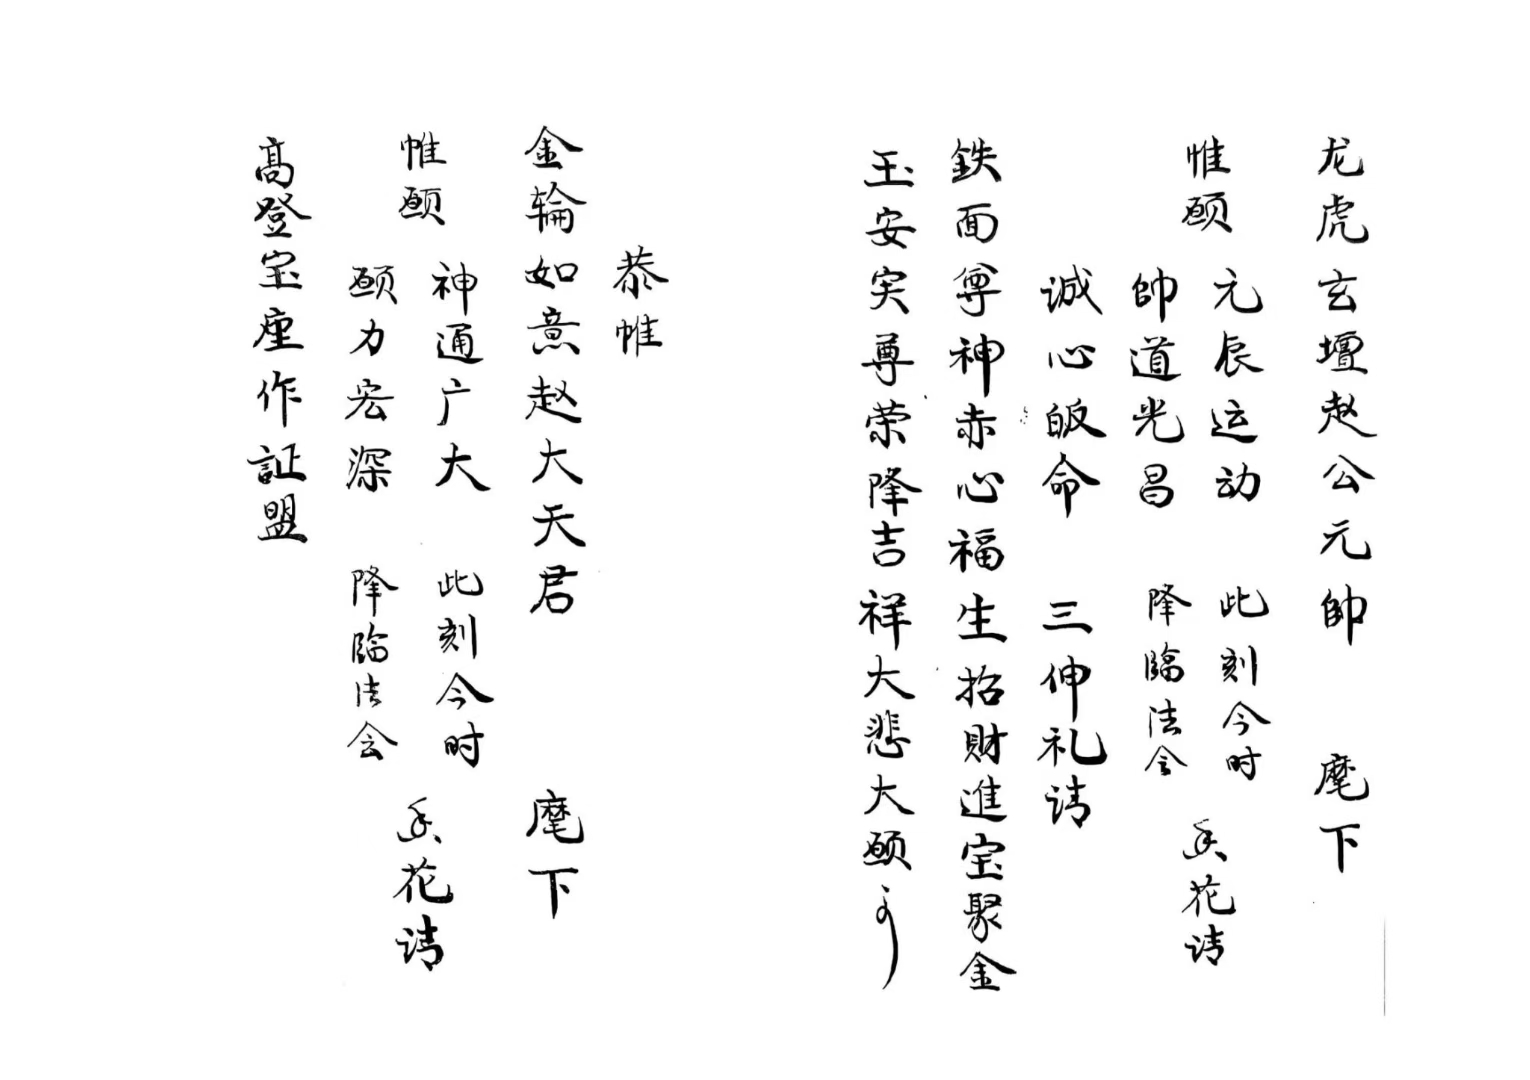 龙虎玄壇赵公元帥 麾下
惟愿
元辰运动
帥道光昌
此刻今时
降臨法会
香花请
诚心皈命 三伸礼请
鉄面尊神赤心福生招財進宝聚金
玉安宊尊荣降吉祥大悲大愿
恭帷
金轮如意赵大天君 麾下
帷愿
神通广大
愿力宏深
此刻今时
降臨法会
香花请
高登宝座作証盟